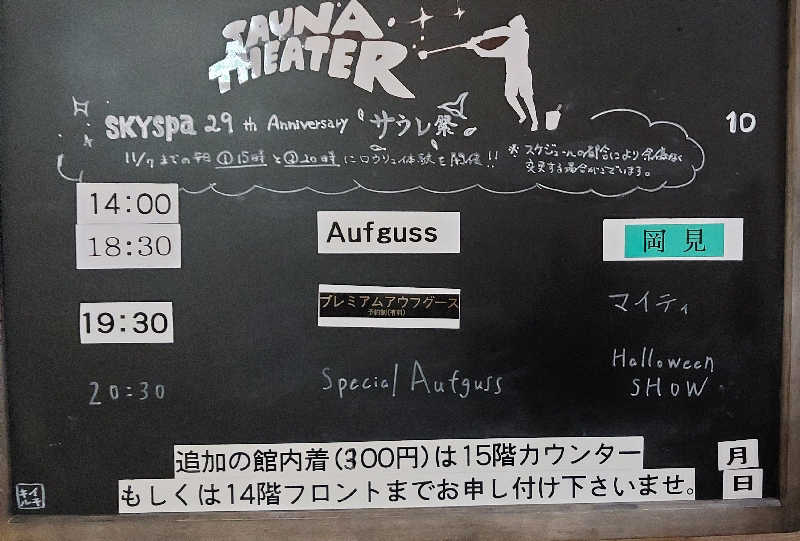 SAUNA
THEATER
SKYSpa 29th Anniversary "サウレ祭"
10
11/7までの平日①15時と②20時にロウリュ体験を開催!!
※スケジュールの都合により余儀なく
変更する場合がございます。
14:00
18:30
Aufguss
岡見
19:30
プレミアムアウフグース
予約制(有料)
マイティ
20:30
Special Aufguss
Halloween
SHOW
追加の館内着(300円)は15階カウンター
もしくは14階フロントまでお申し付け下さいませ。
月
日